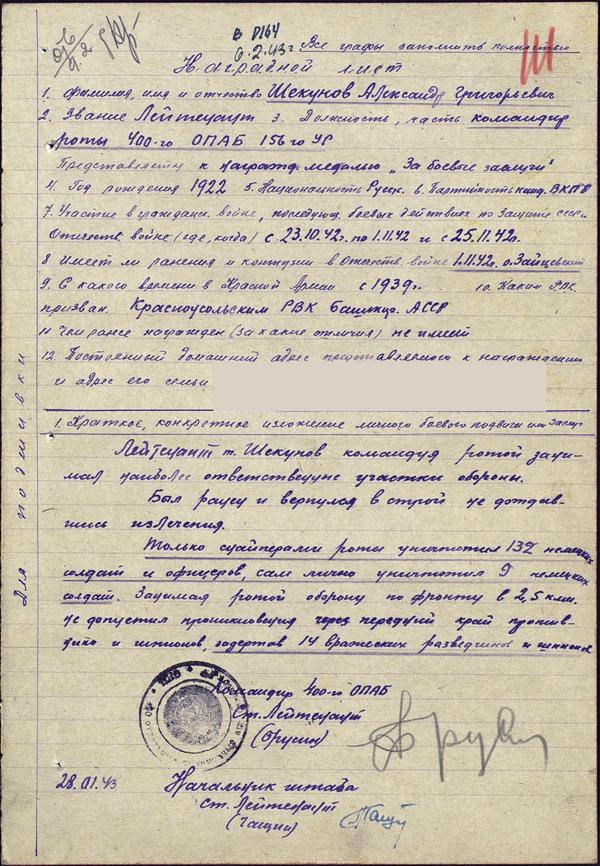 в
6.2.43г.
Все графы заполнить полностью
Наградной лист
1. Фамилия, имя и отчество Шекунов Александр Григорьевич
2. Звание Лейтенант 3. Должность, часть командир
роты 400-го ОПАБ 156го УР
Представляется к награжд. медалью „За боевые заслуги"
4. Год рождения 1922 5. Национальность Русск. 6. Партийность канд. ВКПб
7. Участие в гражданск. войне, последующ. боевых действиях по защите СССР и
Отечеств. войне (где, когда) с 23.10.42г. по 1.11.42 и с 25.11.42г.
8 Имеет ли ранения и контузии в Отечеств. войне 1.11.42г. о. Зайцевский
9. С какого времени в Красной Армии с 1939г. 10. Каким РВК
призван. Красноусольским РВК Башкир. АССР
11. Чем ранее награжден (за какие отличия) не имеет
12. Постоянный домашний адрес представляемого к награждению
и адрес его семьи
1. Краткое, конкретное изложение личного боевого подвига или заслуг
Лейтенант т. Шекунов командуя ротой зани-
мал наиболее ответственные участки обороны.
Был ранен и вернулся в строй не дождав-
шись излечения.
Только снайперами роты уничтожил 132 немецких
солдат и офицеров, сам лично уничтожил 9 немецких
солдат. Занимая ротой оборону по фронту в 2,5 клм.
не допустил проникновения через передний край против-
ника и шпионов, задержав 14 вражеских разведчиков и шпионов
Командир 400-го ОПАБ
Ст. Лейтенант
28.01.43 Начальник штаба
ст. Лейтенант
Для подшивки